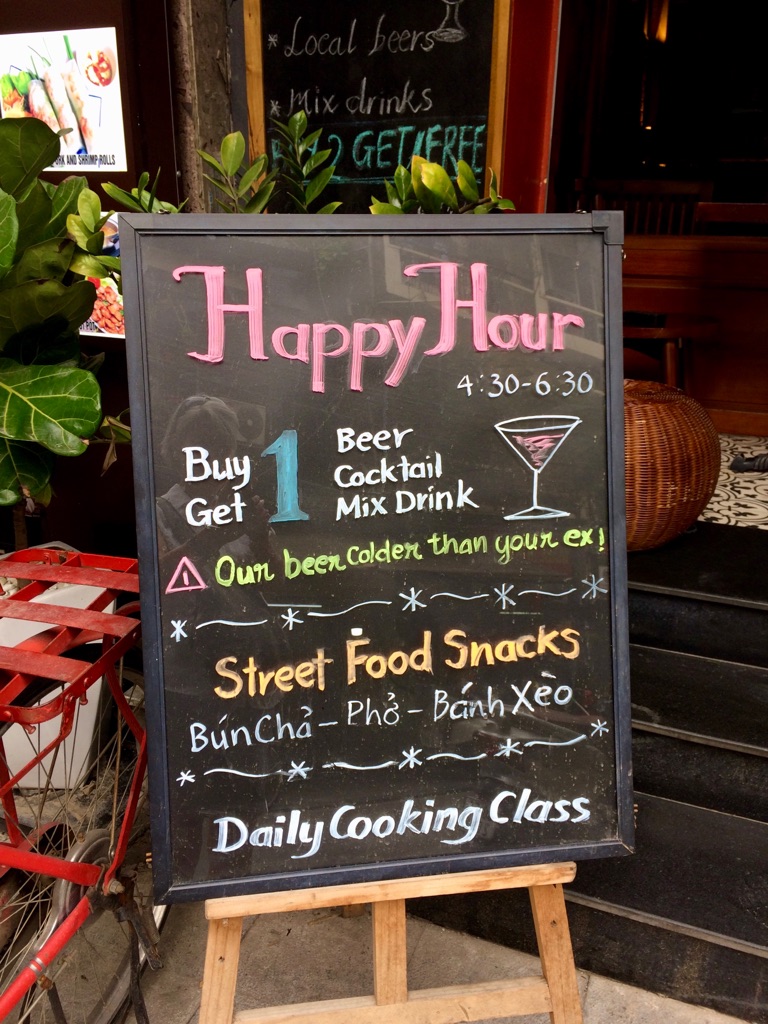 * Local beers
* Mix drinks
2 GET 1 FREE
AND SHRIMP ROLLS
Happy Hour
4:30-6:30
Buy 1 Beer
Get Cocktail
Mix Drink
Our beer colder than your ex!
Street Food Snacks
Bún Chả - Phở - Bánh Xèo
Daily Cooking Class